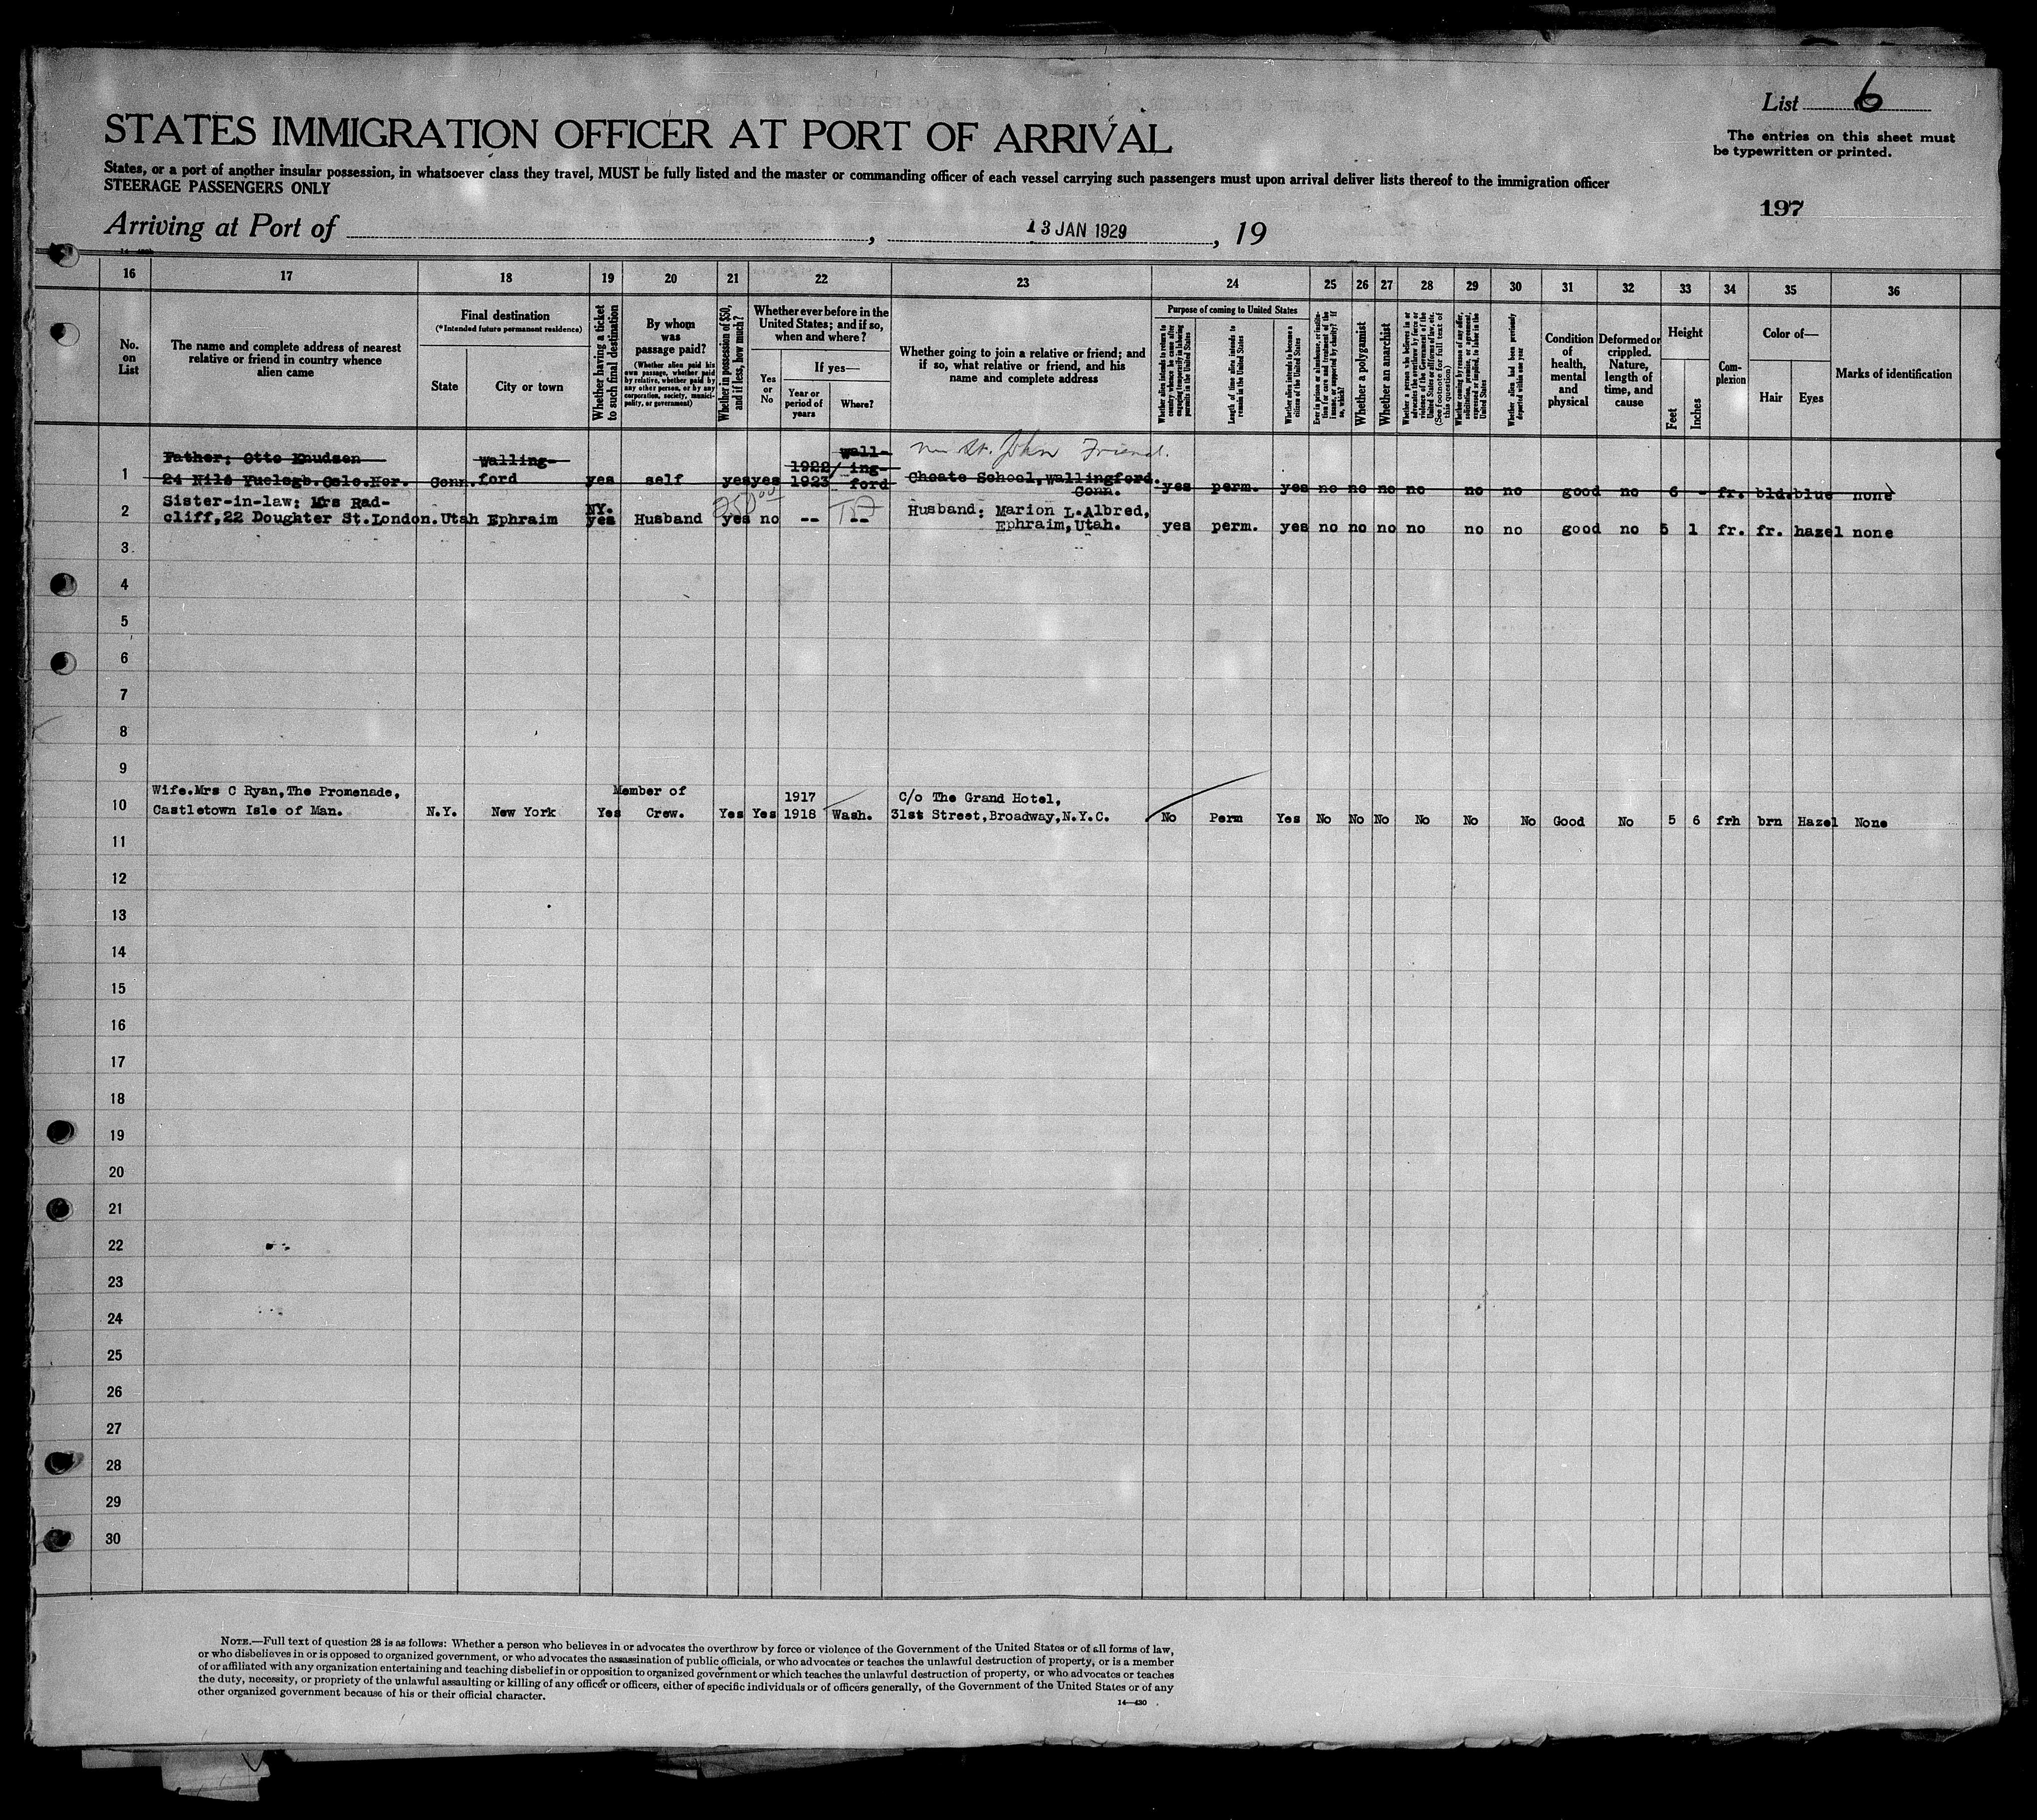 List 6
STATES IMMIGRATION OFFICER AT PORT OF ARRIVAL
The entries on this sheet must
be typewritten or printed.
States, or a port of another insular possession, in whatsoever class they travel, MUST be fully listed and the master or commanding officer of each vessel carrying such passengers must upon arrival deliver lists thereof to the immigration officer
STEERAGE PASSENGERS ONLY
197
Arriving at Port of , 13 JAN 1929 , 19
16 17 18 19 20 21 22 23 24 25 26 27 28 29 30 31 32 33 34 35 36
No. on List
The name and complete address of nearest relative or friend in country whence alien came
Final destination
(*Intended future permanent residence)
State
City or town
Whether having a ticket to such final destination
By whom was passage paid?
(Whether alien paid his own passage, whether paid by relative, whether paid by any other person, or by any corporation, society, municipality, or government)
Whether in possession of $50, and if less, how much?
Whether ever before in the United States; and if so, when and where?
Yes or No
If yes—
Year or period of years
Where?
Whether going to join a relative or friend; and if so, what relative or friend, and his name and complete address
Purpose of coming to United States
Whether alien intends to return to country whence he came after engaging temporarily in laboring pursuits in the United States
Length of time alien intends to remain in the United States
Whether alien intends to become a citizen of the United States
Ever in prison or almshouse, or institution for care and treatment of the insane, or supported by charity? If so, which?
Whether a polygamist
Whether an anarchist
Whether a person who believes in or advocates the overthrow by force or violence of the Government of the United States or all forms of law, etc. (See footnote for full text of this question)
Whether coming by reason of any offer, solicitation, promise, or agreement, expressed or implied, to labor in the United States
Whether alien had been previously deported within one year
Condition of health, mental and physical
Deformed or crippled. Nature, length of time, and cause
Height
Feet
Inches
Complexion
Color of—
Hair
Eyes
Marks of identification
Father: Otto Knudsen walling- 1922/ wall-ing- St. John Friend.
1 24 Nils Oslo.Nor. Conn. ford yes self yes yes 1923 ford Choate School,Wallingford. Conn. yes perm. yes no no no no no no good no 6 - fr. bld. blue none
Sister-in-law: Mrs Rad- NY. 250 00 Husband: Marion L.Albred,
2 cliff,22 Doughter St.London. Utah Ephraim yes Husband yes no -- -- Ephraim,Utah. yes perm. yes no no no no no no good no 5 1 fr. fr. hazel none
3
4
5
6
7
8
9
Wife.Mrs C Ryan,The Promenade, Member of 1917 C/o The Grand Hotel,
10 Castletown Isle of Man. N.Y. New York Yes Crew. Yes Yes 1918 Wash. 31st Street,Broadway,N.Y.C. No Perm Yes No No No No No No Good No 5 6 frh brn Hazel None
11
12
13
14
15
16
17
18
19
20
21
22
23
24
25
26
27
28
29
30
NOTE.—Full text of question 28 is as follows: Whether a person who believes in or advocates the overthrow by force or violence of the Government of the United States or of all forms of law,
or who disbelieves in or is opposed to organized government, or who advocates the assassination of public officials, or who advocates or teaches the unlawful destruction of property, or is a member
of or affiliated with any organization entertaining and teaching disbelief in or opposition to organized government or which teaches the unlawful destruction of property, or who advocates or teaches
the duty, necessity, or propriety of the unlawful assaulting or killing of any officer or officers, either of specific individuals or of officers generally, of the Government of the United States or of any
other organized government because of his or their official character.
14—430